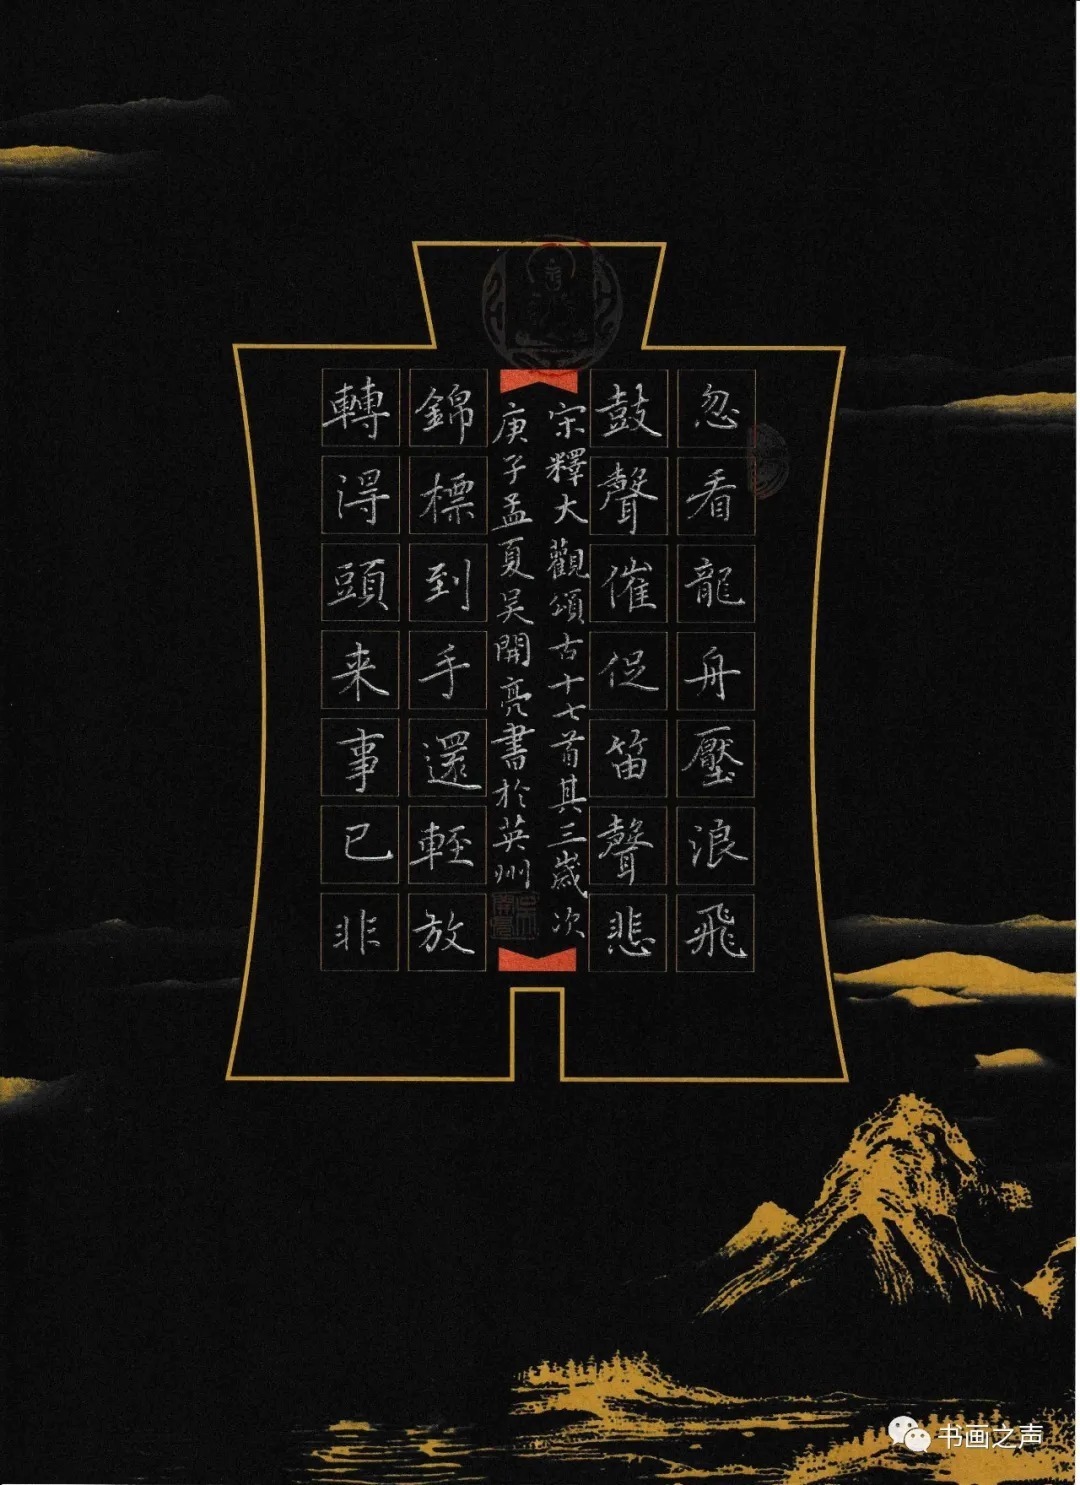 忽看龍舟壓浪飛
鼓聲催促笛聲悲
宋釋大觀頌古十七首其三歲次
庚子孟夏吴開亮書於英州
錦標到手還輕放
轉得頭来事已非
书画之声